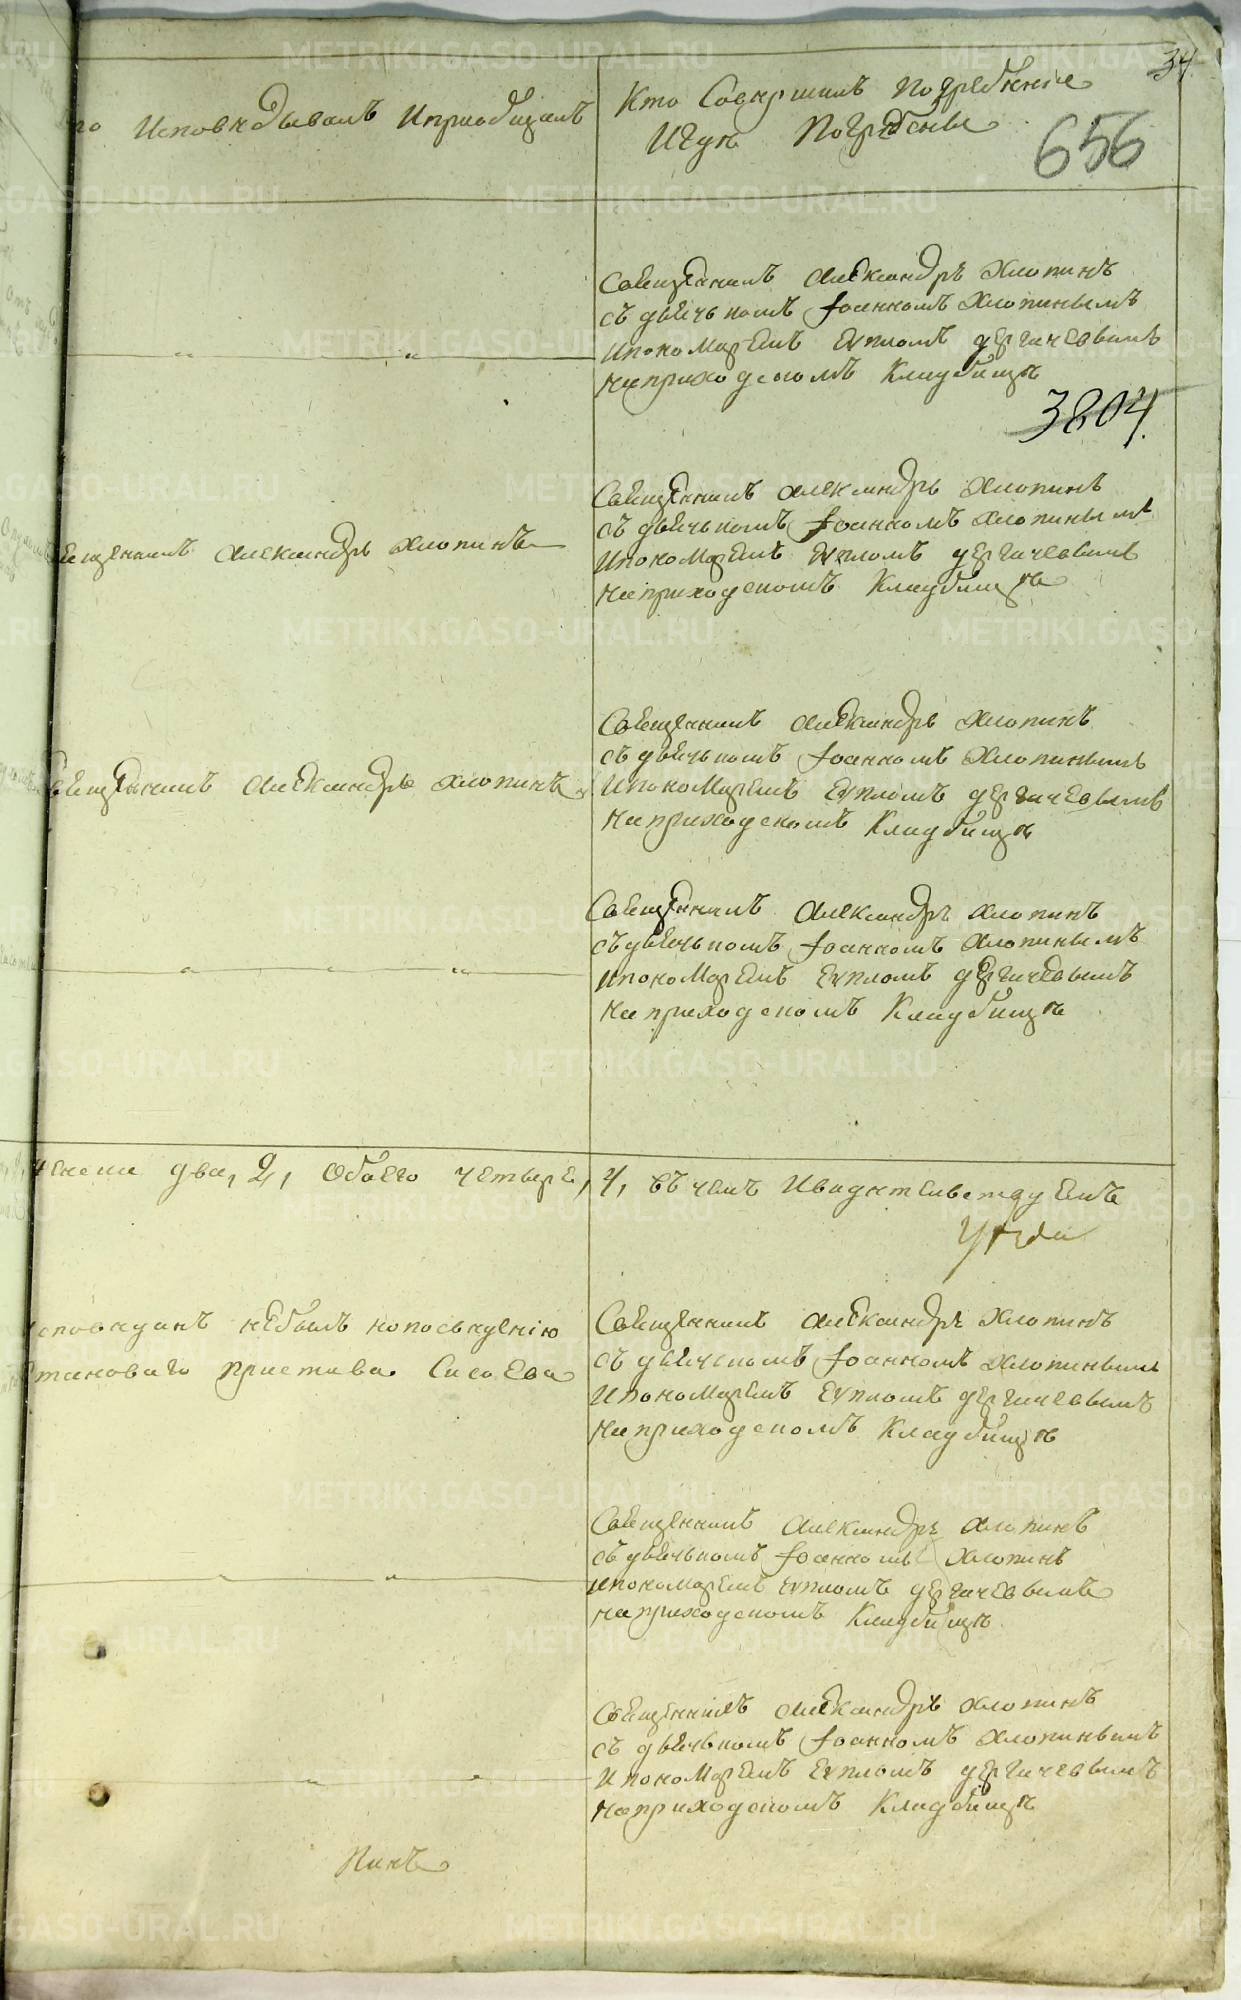 34.
656
Исповѣдывалъ и приобщалъ
Кто Совершилъ Погребенiе
и гдѣ Погребены
Священникъ Александръ Хлопинъ
съ дьячькомъ Iоанномъ Хлопинымъ
и пономаремъ Еvпломъ Дергачевымъ
на приходскомъ Кладбищѣ
3804.
Священникъ Александръ Хлопинъ
Священникъ Александръ Хлопинъ
съ дьячькомъ Iоанномъ Хлопинымъ
и пономаремъ Еvпломъ Дергачевымъ
на приходскомъ Кладбищѣ
Священникъ Александръ Хлопинъ
Священникъ Александръ Хлопинъ
съ дьячькомъ Iоанномъ Хлопинымъ
и пономаремъ Еvпломъ Дергачевымъ
на приходскомъ Кладбищѣ
Священникъ Александръ Хлопинъ
съ дьячькомъ Iоанномъ Хлопинымъ
и пономаремъ Еvпломъ Дергачевымъ
на приходскомъ Кладбищѣ
женска два, 2, Обоего четыре, 4, въ чемъ и свидѣтельствуемъ
Исповѣданъ не былъ по посѣченiю
Становаго Пристава Сисоева
Священникъ Александръ Хлопинъ
съ дьячкомъ Iоанномъ Хлопинымъ
и пономаремъ Еvпломъ Дергачевымъ
на приходскомъ Кладбищѣ
Священникъ Александръ Хлопинъ
съ дьячькомъ Iоанномъ Хлопинъ
и пономаремъ Еvпломъ Дергачевымъ
на приходскомъ Кладбищѣ
Священникъ Александръ Хлопинъ
съ дьячькомъ Iоанномъ Хлопинымъ
и пономаремъ Еvпломъ Дергачевымъ
на приходскомъ Кладбищѣ
METRIKI.GASO-URAL.RU